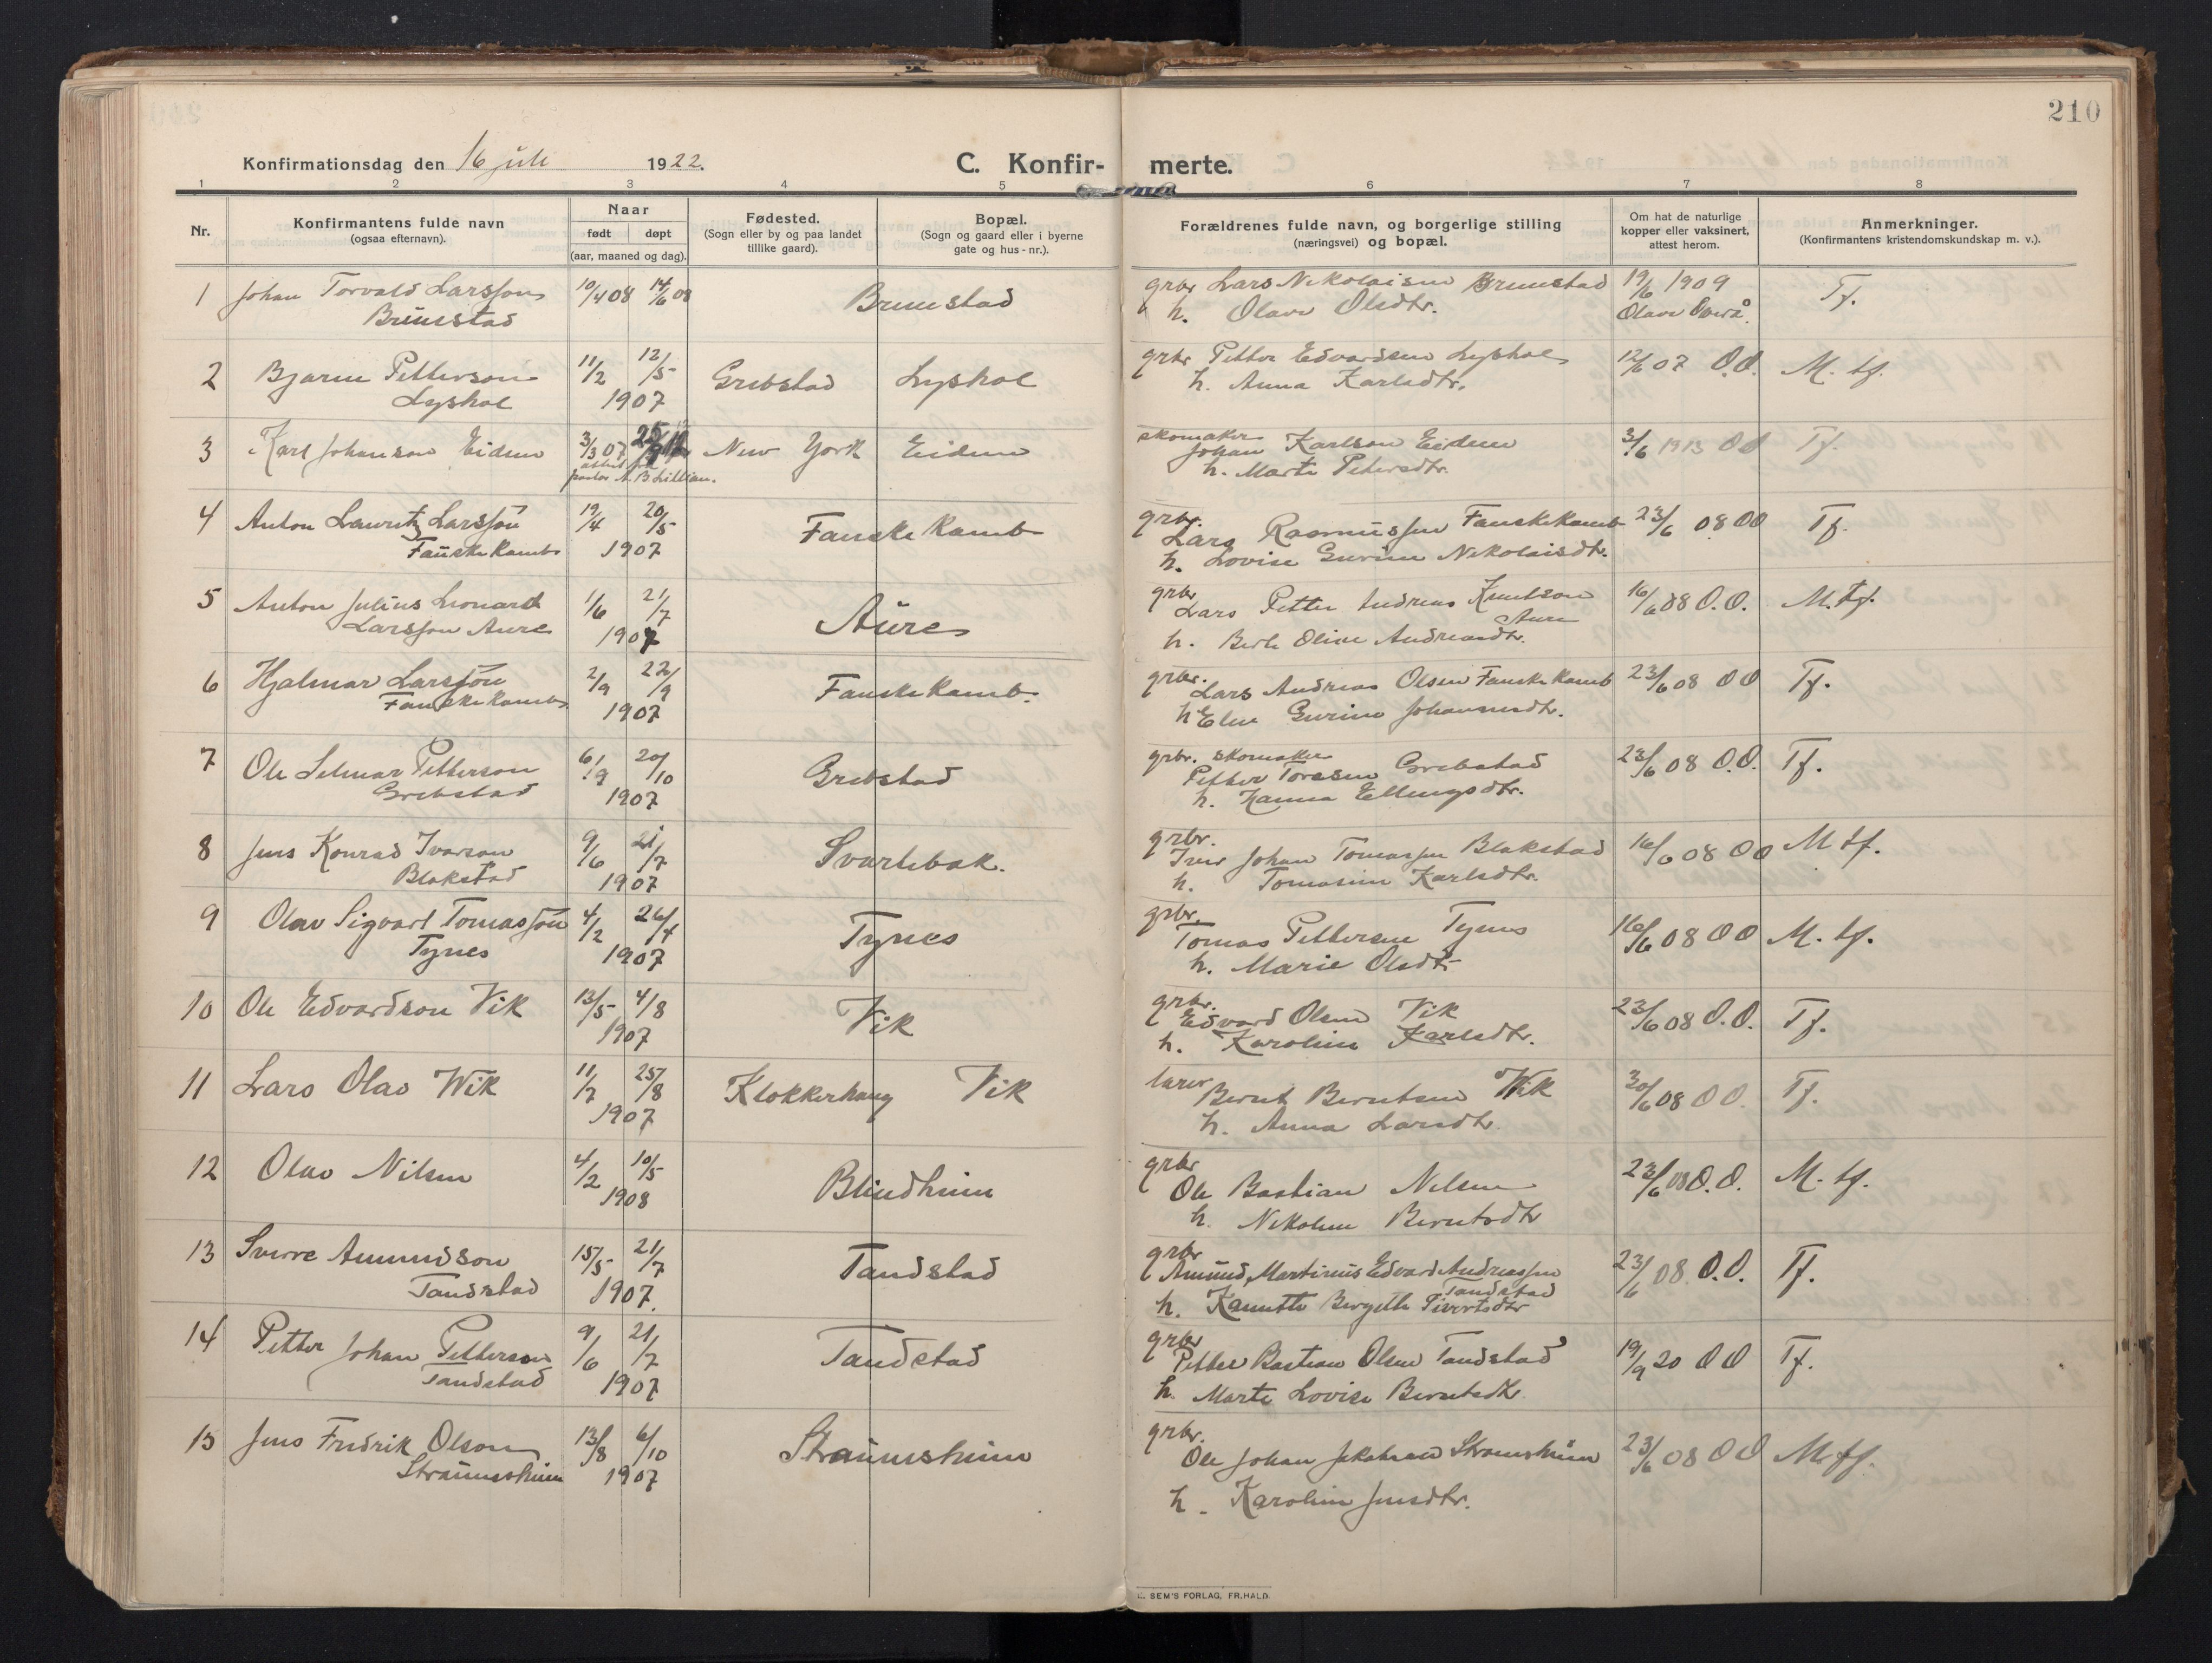 210
Konfirmationsdag den 16 juli 1922.
C. Konfir- merte.
1 2 3 4 5 6 7 8
Nr.
Konfirmantens fulde navn
(ogsaa efternavn).
Naar
født døpt
(aar, maaned og dag).
Fødested.
(Sogn eller by og paa landet
tillike gaard).
Bopæl.
(Sogn og gaard eller i byerne
gate og hus-nr.).
Forældrenes fulde navn, og borgerlige stilling
(næringsvei) og bopæl.
Om hat de naturlige
kopper eller vaksinert,
attest herom.
Anmerkninger.
(Konfirmantens kristendomskundskap m. v.).
1 Johan Torvald Larsson 10/4 08 14/6 08 Brunstad grbr Lars Nikolaisen Brunstad 19/6 1909 Tf.
Brunstad h. Olave Olsdtr. Olave Overå.
2 Bjarne Petterson 11/2 12/5 Grebstad Lyshol grbr Petter Edvardsen Lyshol 12/6 07 O.O. M. tf.
Lyshol 1907 h. Anna Karlsdtr.
3 Karl Johanson Eidem 3/3 07 New York Eidem skomaker Johan Karlson Eidem 3/6 1913 OO Tf.
attest fra
pastor h. Marte Petersdtr.
4 Anton Lauritz Larsson 19/4 20/5 Fauskekamb grbr. Lars Rasmussen Fauskekamb 23/6 08 OO Tf.
Fauskekamb 1907 h. Lovise Gurine Nikolaisdtr.
5 Anton Julius Leonard 1/6 21/7 Aure grbr Lars Petter Andreas Knutson 16/6 08 O.O. M. Tf.
Larsson Aure 1907 Aure
h. Berte Oline Andreasdtr.
6 Hjalmar Larsson 2/9 22/9 Fauskekamb. grbr. Lars Andreas Olsen Fauskekamb 23/6 08 OO Tf.
Fauskekamb 1907 h. Eline Gurine Johannesdtr.
7 Ole Selmar Petterson 6/9 20/10 Grebstad grbr. skomaker 23/6 08 O.O. Tf.
Grebstad 1907 Petter Toresen Grebstad
h. Hanna Ellingsdtr.
8 Jens Konrad Ivarson 9/6 21/7 Svartebak. grbr. Iver Johan Tomassen Blakstad 16/6 08 OO M tf.
Blakstad 1907 h. Tomasine Karlsdtr.
9 Olav Sigvart Tomasson 4/2 26/4 Tynes grbr. Tomas Pettersen Tynes 16/6 08 OO M. tf.
Tynes 1907 h. Marie Olsdtr
10 Ole Edvardson Vik 13/5 4/8 Vik grbr. Edvard Olsen Vik 23/6 08 O.O. Tf.
1907 h. Karoline Karlsdtr.
11 Lars Olav Wik 11/7 25/8 Klokkerhaug Vik lærer Bernt Berntsen Wik 30/6 08 OO. Tf.
1907 h. Anna Larsdtr.
12 Olav Nilsen 4/2 10/5 Blindheim grbr Ole Bastian Nilsen 23/6 08 O.O. M. tf.
1908 h. Nikoline Berntsdtr
13 Sverre Amundson 15/5 21/7 Tandstad grbr Amund Martinus Edvard Andreassen 23/6 08 O.O. Tf.
Tandstad 1907. Tandstad
h. Kanutte Bergitte Sivertsdtr
14 Petter Johan Petterson 9/6 21/7 Tandstad grbr Petter Bastian Olsen Tandstad 19/9 20 OO Tf.
Tandstad 1907 h. Marte Lovise Berntsdtr.
15 Jens Fredrik Olson 13/8 6/10 Straumsheim grbr. Ole Johan Jakobsen Straumsheim 23/6 08 OO M tf.
Straumsheim 1907 h. Karoline Jensdtr.
SEM'S FORLAG, FR.HALD.